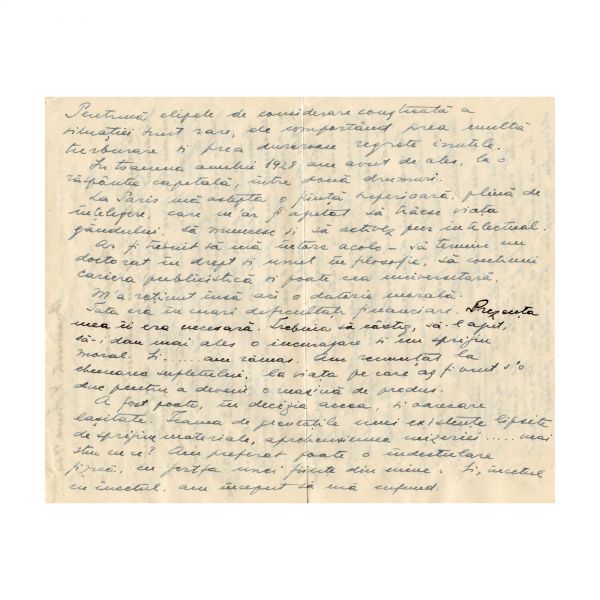 Pentrucă clipele de considerare conștientă a
situației sunt rare, ele comportând prea multă
turburare și prea dureroase regrete inutile.
In toamna anului 1928 am avut de ales, la o
răspântie capitală, între două drumuri.
La Paris mă aștepta o ființă superioară, plină de
înțelegere, care m'ar fi ajutat să trăesc viața
gândului. Să muncesc și să activez pur intelectual.
Ar fi trebuit să mă întorc acolo - să termin un
doctorat în drept și unul în filosofie, să continui
cariera publicistică și poate cea universitară.
M'a reținut însă aci o datorie morală.
Tata era în mari dificultăți financiare. Prezența
mea îi era necesară. Trebuia să câștig, să-l ajut,
să-i dau mai ales o încurajare și un sprijin
moral. Și ..... am rămas. Am renunțat la
chemarea sufletului, la viața pe care aș fi vrut s'o
duc pentru a deveni o mașină de produs.
A fost poate, în decizia aceea, și oarecare
lașitate. Teama de greutățile unei existențe lipsite
de sprijine materiale, aprehensiunea mizeriei ..... mai
știu eu ce? Am preferat poate o îndestulare
fizică, cu jertfa unei ființe din mine. Și, încetul
cu încetul, am început să mă cufund.